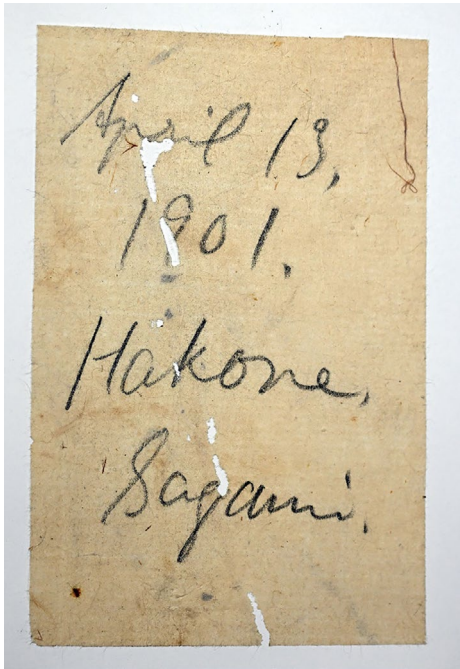 April 13,
1901.
Hakone,
Sagami.